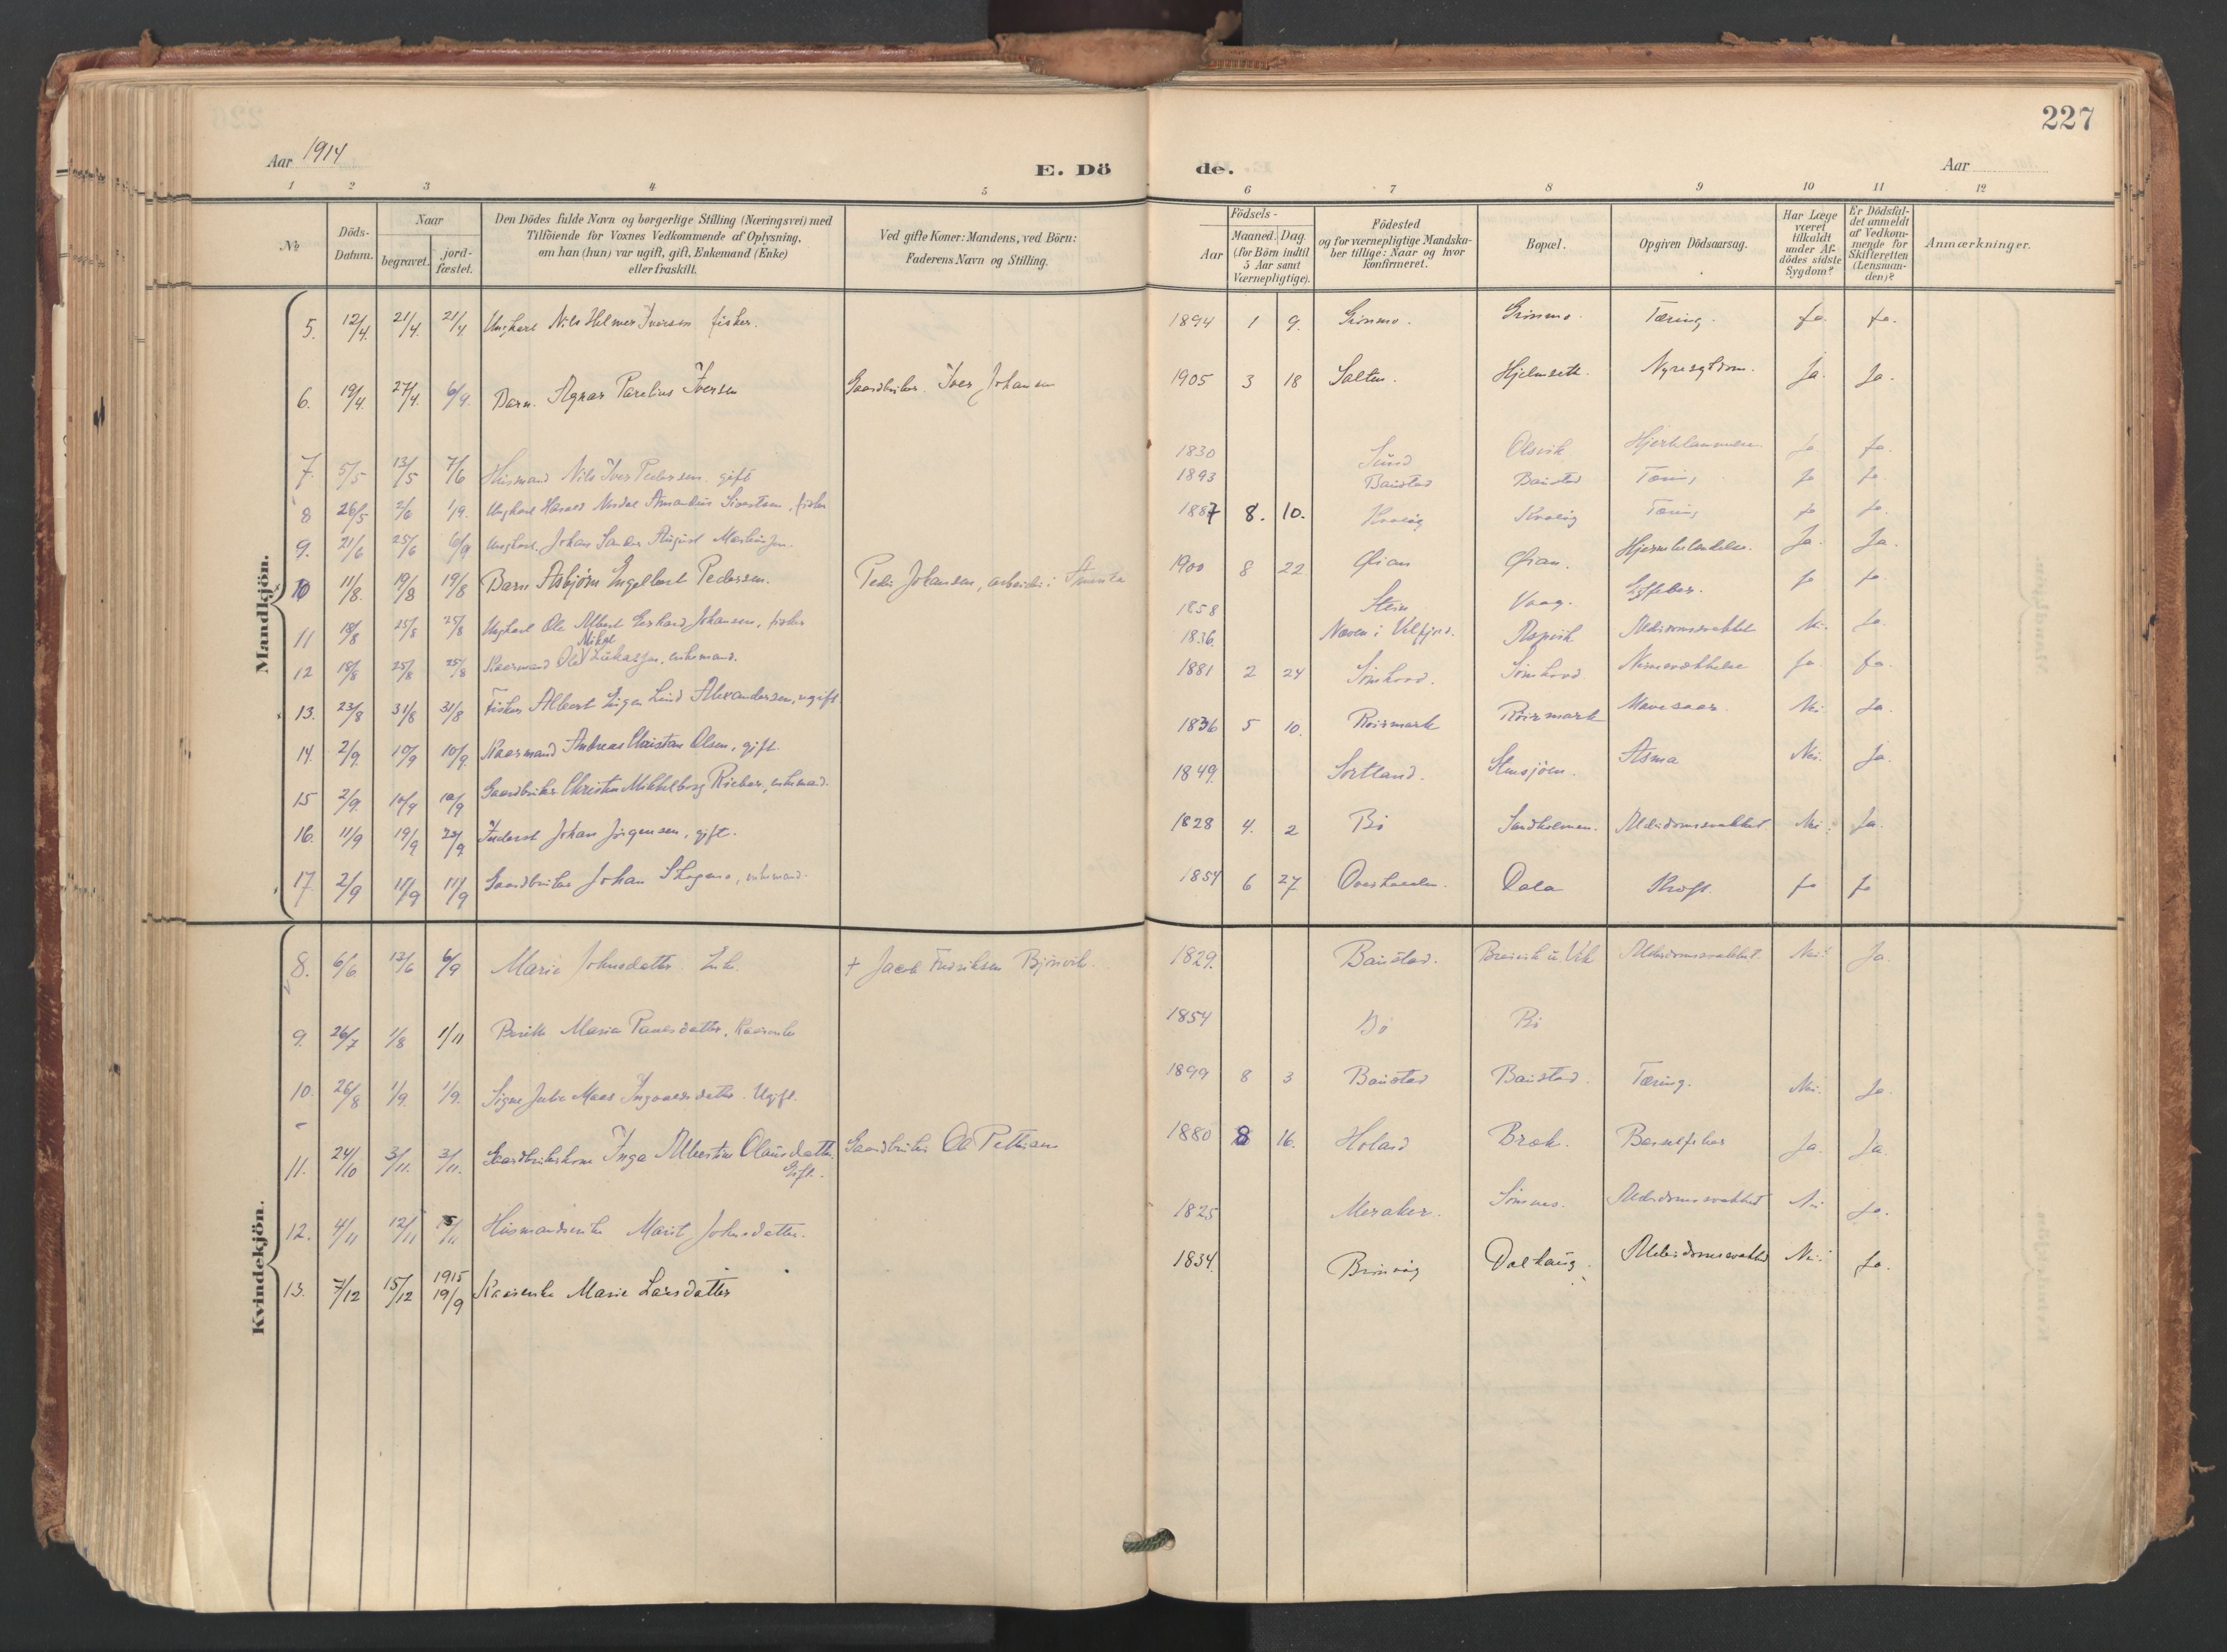 227
Aar 1914
E. Dö
de.
Aar
1 2 3 4 5 6 7 8 9 10 11 12
№
Döds-
Datum.
Naar
begravet.
jord-
fæstet.
Den Dödes fulde Navn og borgerlige Stilling (Næringsvei) med
Tilföiende for Voxnes Vedkommende af Oplysning,
om han (hun) var ugift, gift, Enkemand (Enke)
eller fraskilt.
Ved gifte Koner: Mandens, ved Börn:
Faderens Navn og Stilling.
Födsels-
Aar
Maaned. Dag.
(for Börn indtil
5 Aar samt
Værnepligtige).
Födested
og for værnepligtige Mandska-
ber tillige: Naar og hvor
konfirmeret.
Bopæl.
Opgiven Dödsaarsag.
Har Læge
været
tilkaldt
under Af-
dödes sidste
Sygdom?
Er Dödsfal-
det anmeldt
af Vedkom-
mende for
Skifteretten
(Lensman-
den)?
Anmærkninger.
Mandkjön.
5. 12/4 21/4 21/4 Ungkarl Nils Helmer Iversen fisker. 1894 1 9. Grönmo. Grönmo. Tæring. Ja. Ja.
6. 19/4 27/4 6/9 Barn. Agnar Parelius Iversen Gaardbruker Iver Johansen 1905 3 18 Salten. Hjelmseth. Nyresygdom. Ja. Ja.
7. 5/5 13/5 7/6 Husmand Nils Iver Pedersen. gift 1830 Sund Olsvik Hjertelammelse. Ja Ja.
8 26/5 2/6 1/9. Ungkarl Harald Nordal Amandus Sivertsen, fisker 1893 Baustad Baustad Tæring Ja Ja.
9. 21/6 25/6 6/9 Ungkarl. Johan Sander August Martinsen. 1887 8. 10. Tæring Ja Ja.
10 11/8. 19/8 19/8 Barn Asbjörn Engelbert Pedersen. Peder Johansen, arbeider i Amerika 1900 8 22 Hjernebetændelse. Ja. Ja.
11 18/8 25/8 25/8 Ungkarl Ole Albert Gerhard Johansen, fisker 1858 Stein Vaag. Ja Ja.
12 18/8 25/8 25/8 Kaarmand Ole Mikal Lukassen, enkemand. 1836. i Velfjord. Aspvik Alderdomssvakhet Nei. Ja.
13. 23/8 31/8 31/8 Fisker Albert Lind Alexandersen, ugift 1881 2 24 Ja Ja.
14. 2/9. 10/9 10/9. Kaarmand Andreas Christian Olsen, gift. 1836 5 10. Röirmark Röirmark Mavesaar. Nei Ja.
15 2/9. 10/9 10/9 Gaardbruker Christen Mikkelborg Richer, enkemand. 1849. Sortland. Asma Nei. Ja.
16. 11/9 19/9 Inderst Johan Jörgensen, gift. 1828 4. 2 Bö Sandholmen. Alderdomssvakhet Nei. Ja.
17. 2/9 11/9 11/9 Gaardbruker Johan Skogmo, enkemand. 1854 6 27 Overhalden. Dala Kræft. Ja Ja
Kvindekjön.
8. 6/6 13/6 6/9 Marie Johnsdatter. Enke. + Jacob Fredriksen Björnvik. 1829. Baustad. Breivik u. Vik Alderdomssvakhet. Nei. Ja.
9. 26/7 1/8 1/11 Berith Maria Paulsdatter. Kaarenke 1854 Bö Bö
10. 26/8 1/9. 1/9. Signe Julie Maas Ingvaldsdatter. Ugift. 1899 8 3 Baustad Baustad. Tæring. Nei. Ja.
11. 24/10 3/11. 3/11. Gaardbrukerkone Inga Albertine Olausdatter Gaardbruker Ole Pettersen 1880 8 16. Holand Bræk. Barselfeber Ja. Ja.
Gift.
12. 4/11 12/11 15/11 Husmandsenke Marit Johnsdatter. 1825 Meraker. Sömnes. Alderdomssvakhet Nei Ja.
1915
13. 7/12 15/12 19/9 Kaarenke Marie Larsdatter 1834. Dalhaug. Alderdomssvakhet Nei. Ja.